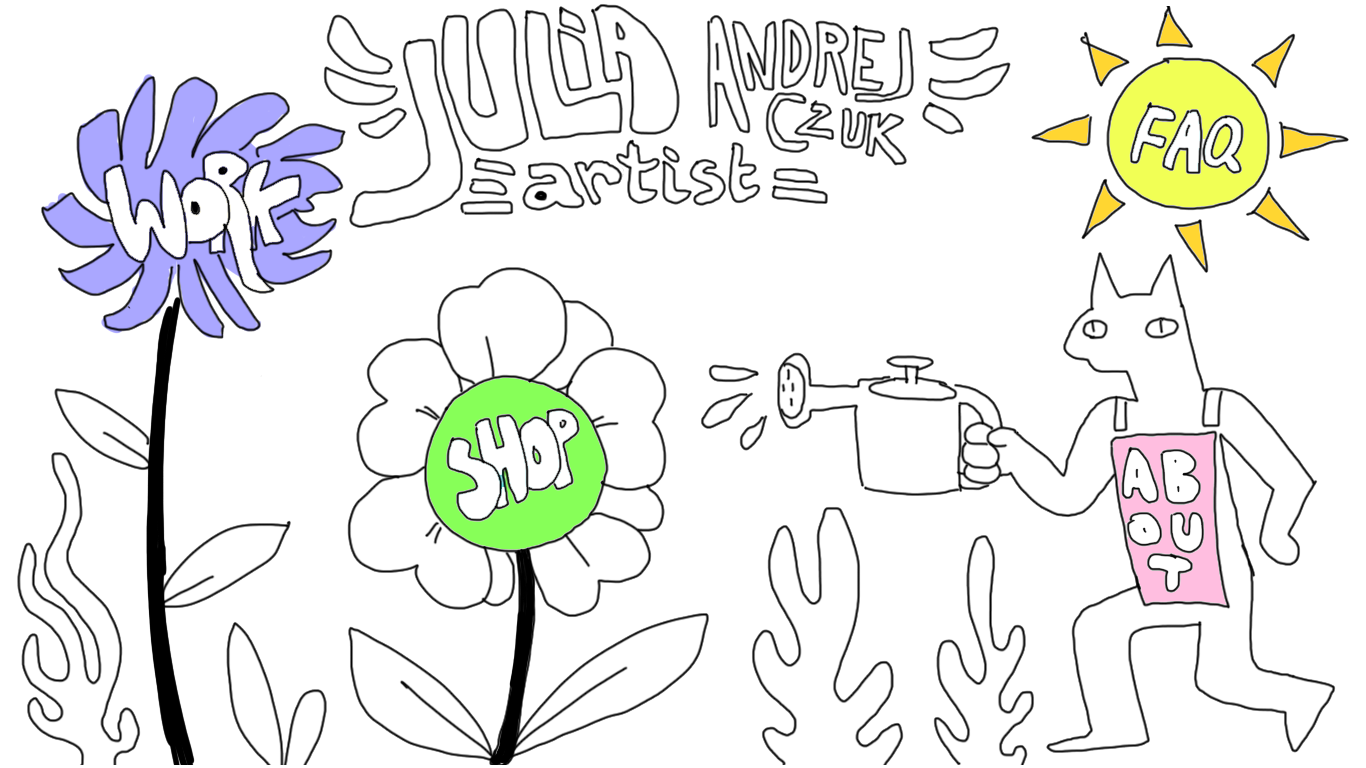 JULIA ANDREJ
CZUK
artist
FAQ
WORK
SHOP
AB
OU
T